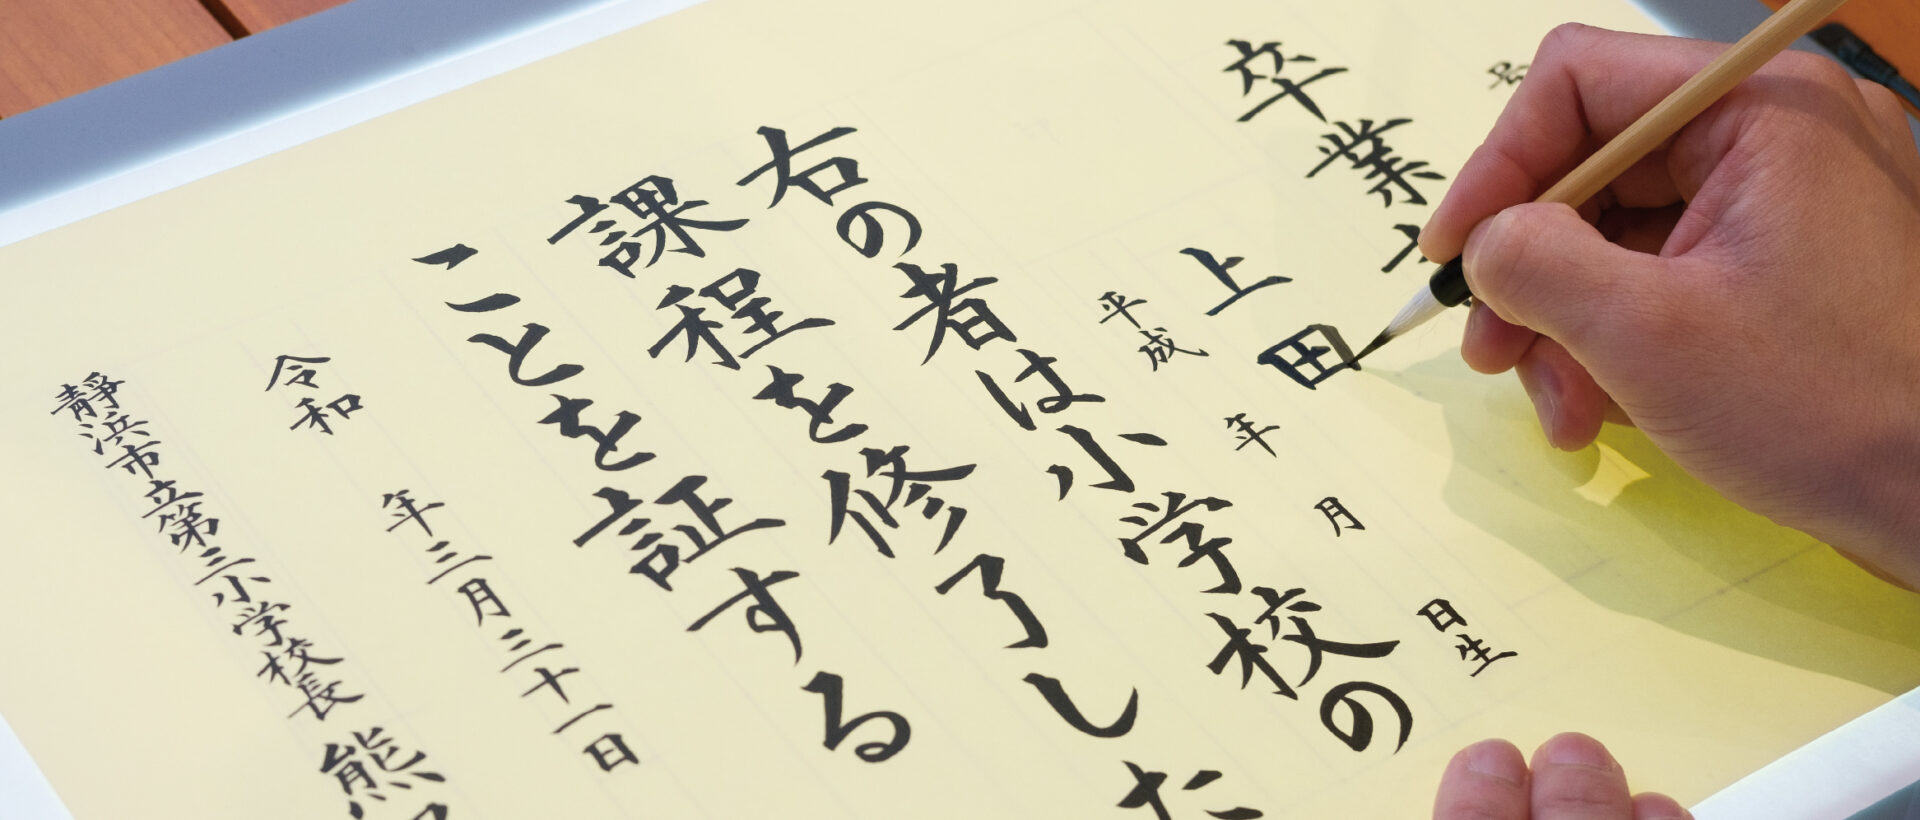 号
卒業
上田
平成 年 月 日生
右の者は小学校の
課程を修了した
ことを証する
令和 年三月三十一日
静浜市立第三小学校長 熊